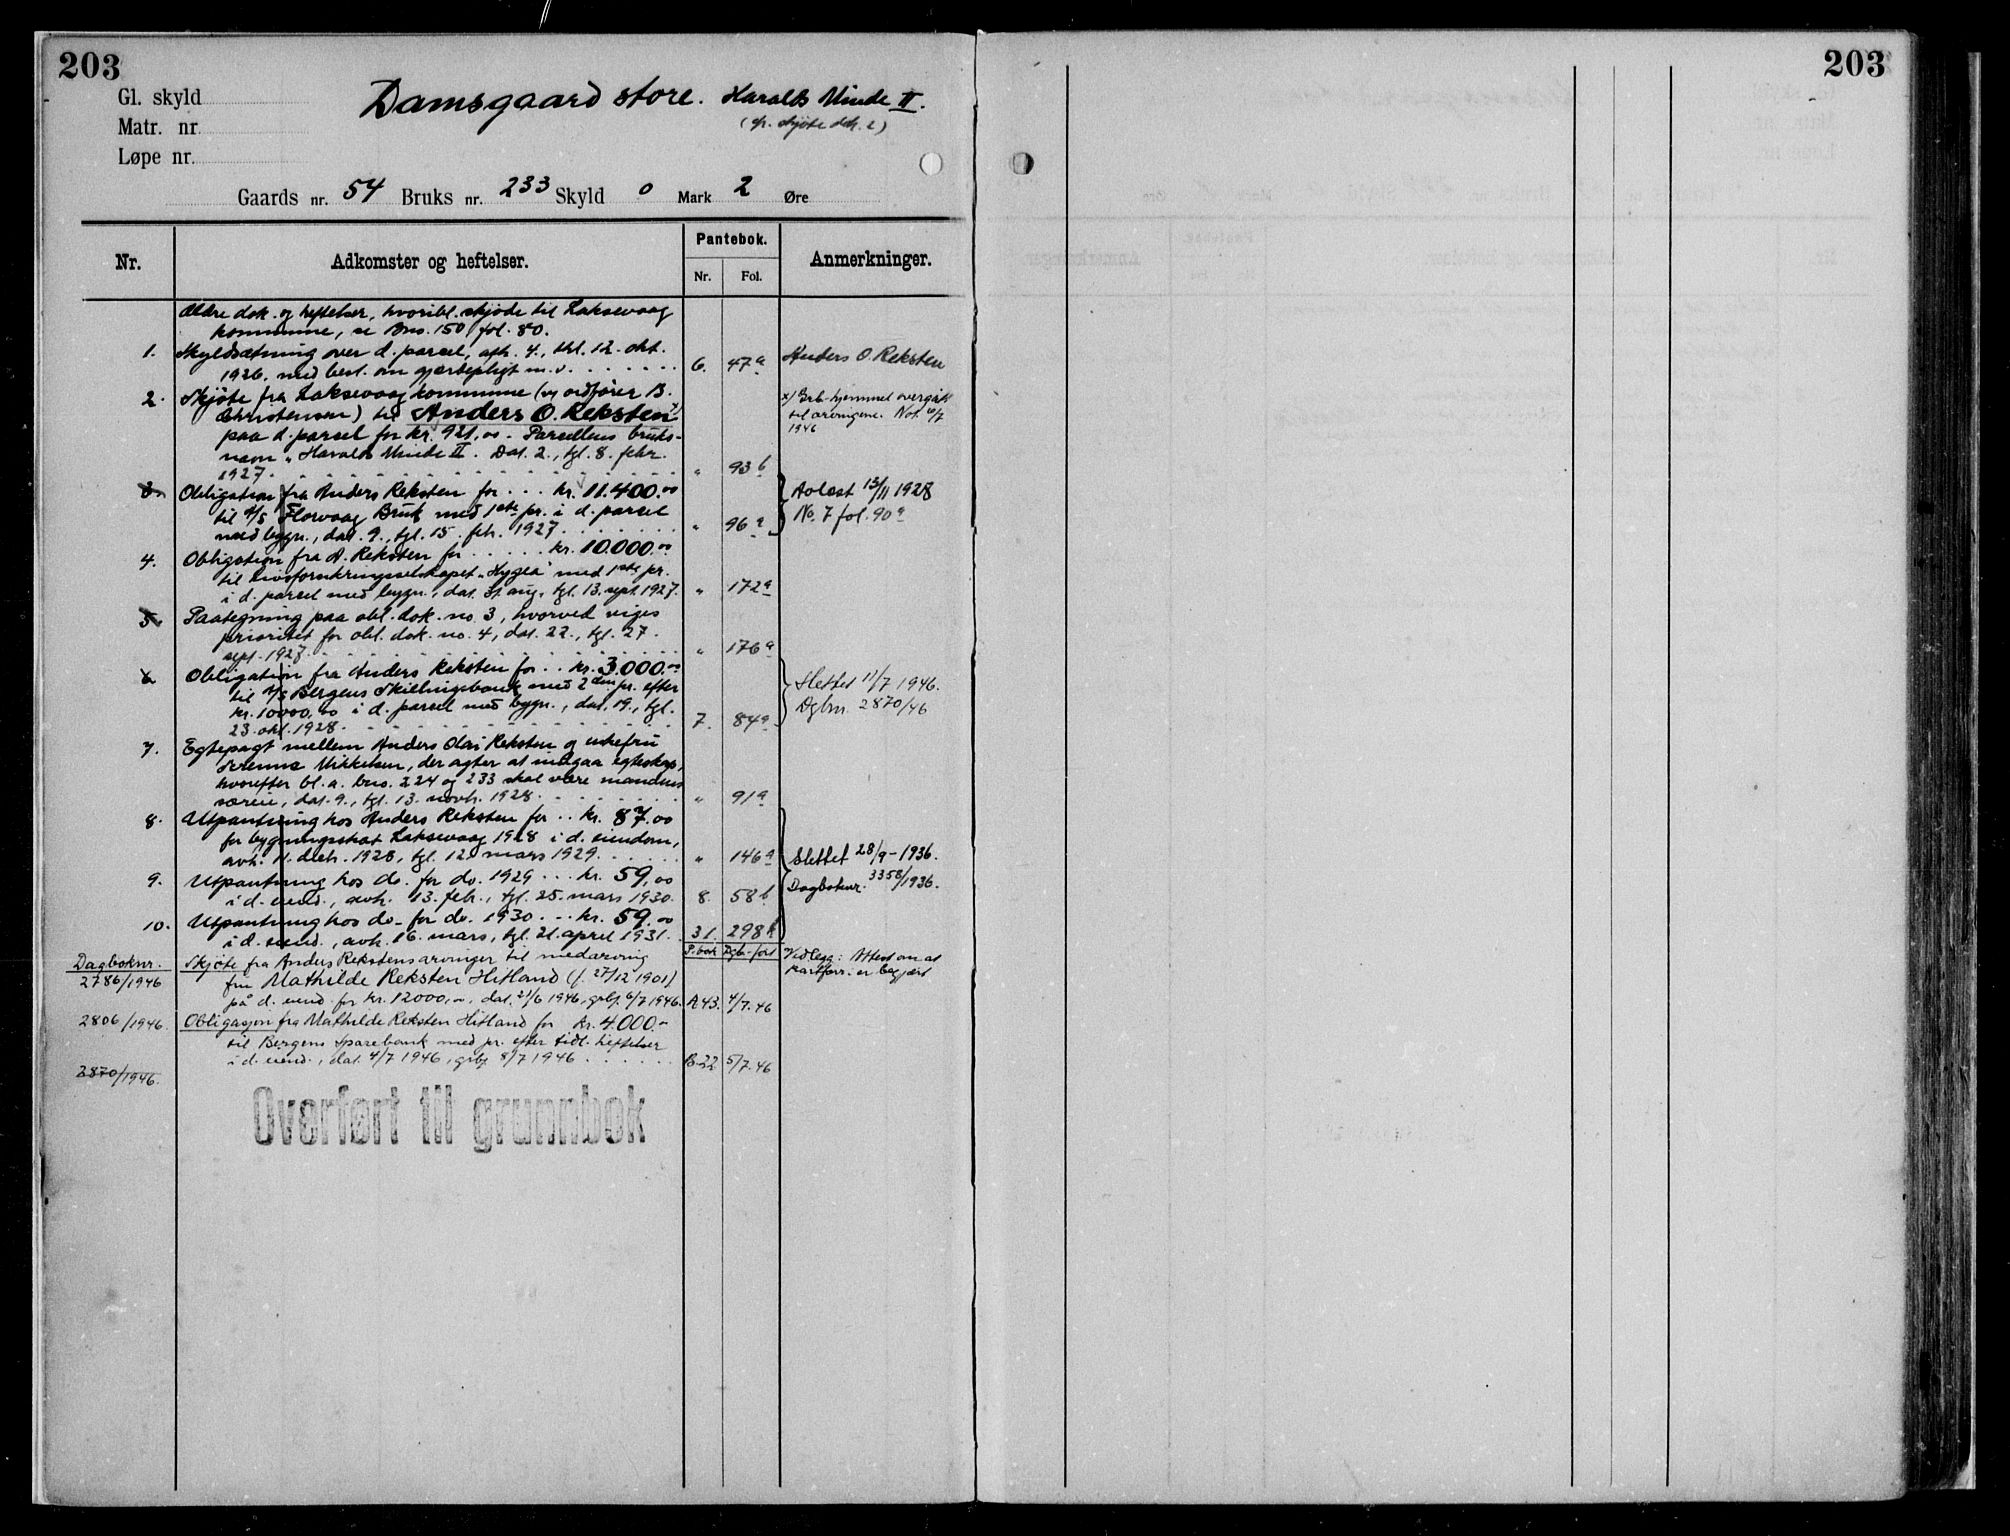 203
203
Gl. skyld
Matr. nr.
Løpe nr.
Damsgaard store. Haralds Minde II.
(cfr. skjøte dok. 2)
Gaards nr. 54 Bruks nr. 233 Skyld 0 Mark 2 Øre
Nr.
Adkomster og heftelser.
Pantebok.
Nr. Fol.
Anmerkninger.
Ældre dok. og heftelser, hvoribl. skjøde til Laksevaag
kommune, se Bno. 150 fol. 80.
1. Skyldsætning over d. parsel, afh. 4., tkl. 12. okt.
1926. med best. om gjærdepligt m.v. 6. 47a
Anders O. Reksten
2. Skjøte fra Laksevaag kommune (v/ ordfører B.
Christensen) til Anders O. Reksten x)
paa d. parsel for kr. 921,00 - Parsellens bruks-
navn "Haralds Minde II. Dat. 2., tgl. 8. febr.
1927. " 93b
x) Grb-hjemmel overgått
til arvingene. Not. 6/7
1946
3. Obligation fra Anders Reksten for . . . kr. 11.400.00
til A/S Florvaag Bruk med 1ste pr. i d. parsel
med bygn., dat. 9., tgl. 15. feb. 1927. " 96a
Avlest 13/11 1928
No. 7 fol. 90a
4. Obligation fra A. Reksten for . . . . . kr. 10.000.00
til Livsforsikringsselskapet "Hygea" med 1ste pr.
i d. parsel med bygn., dat. 31. aug., tgl. 13. sept. 1927. " 172a
5. Paategning paa obl. dok. no. 3, hvorved viges
prioritet for obl. dok. no. 4, dat. 22., tgl. 27.
sept. 1927. " 176a
6. Obligation fra Anders Reksten for . . kr. 3.000.00
til A/S Bergens Skillingsbank med 2den pr. efter
kr. 10000,00 i d. parsel med bygn., dat. 19., tgl.
23. okt. 1928. 7. 84a
Slettet 11/7 1946.
Dgbnr. 2870/46
7. Egtepagt mellem Anders Olai Reksten og enkefru
Mikkelsen, der agter at indgaa egteskap,
hvorefter bl. a. bno. 224 og 233 skal være mandens
særeie, dat. 9., tgl. 13. novb. 1928. " 91a
8. Utpantning hos Anders Reksten for . . kr. 87.00
for bygningsskat Laksevaag 1928 i d. eiendom,
avh. 11. decb. 1928, tgl. 12. mars 1929. " 146a
Slettet 28/9-1936.
Dagboknr. 3358/1936.
9. Utpantning hos do. for do. 1929 . . . kr. 59,00
i d. eiend., avh. 13. febr., tgl. 25. mars 1930. 8. 58b
10. Utpantning hos do. for do. 1930 . . . kr. 59.00
i d. eiend., avh. 16. mars, tgl. 21. april 1931. 31. 298b
P.bok Dgb-ført
Dagboknr.
2786/1946
Skjøte fra Anders Rekstens arvinger til medarving
fru Mathilde Reksten Hitland (f. 27/12 1901)
på d. eiend. for kr. 12000,00, dat. 21/6 1946, grbf. 6/7 1946. A43. 4/7.46
Vedlegg: Attest om at
kartforr. er begjært
2806/1946. Obligasjon fra Mathilde Reksten Hitland for kr. 4.000.-
til Bergens Sparebank med pr. efter tidl. heftelser
i d. eiend., dat. 4/7 1946, grbf. 8/7 1946 . . . . . . B-22 5/7.46
2870/1946.
Overført til grunnbok